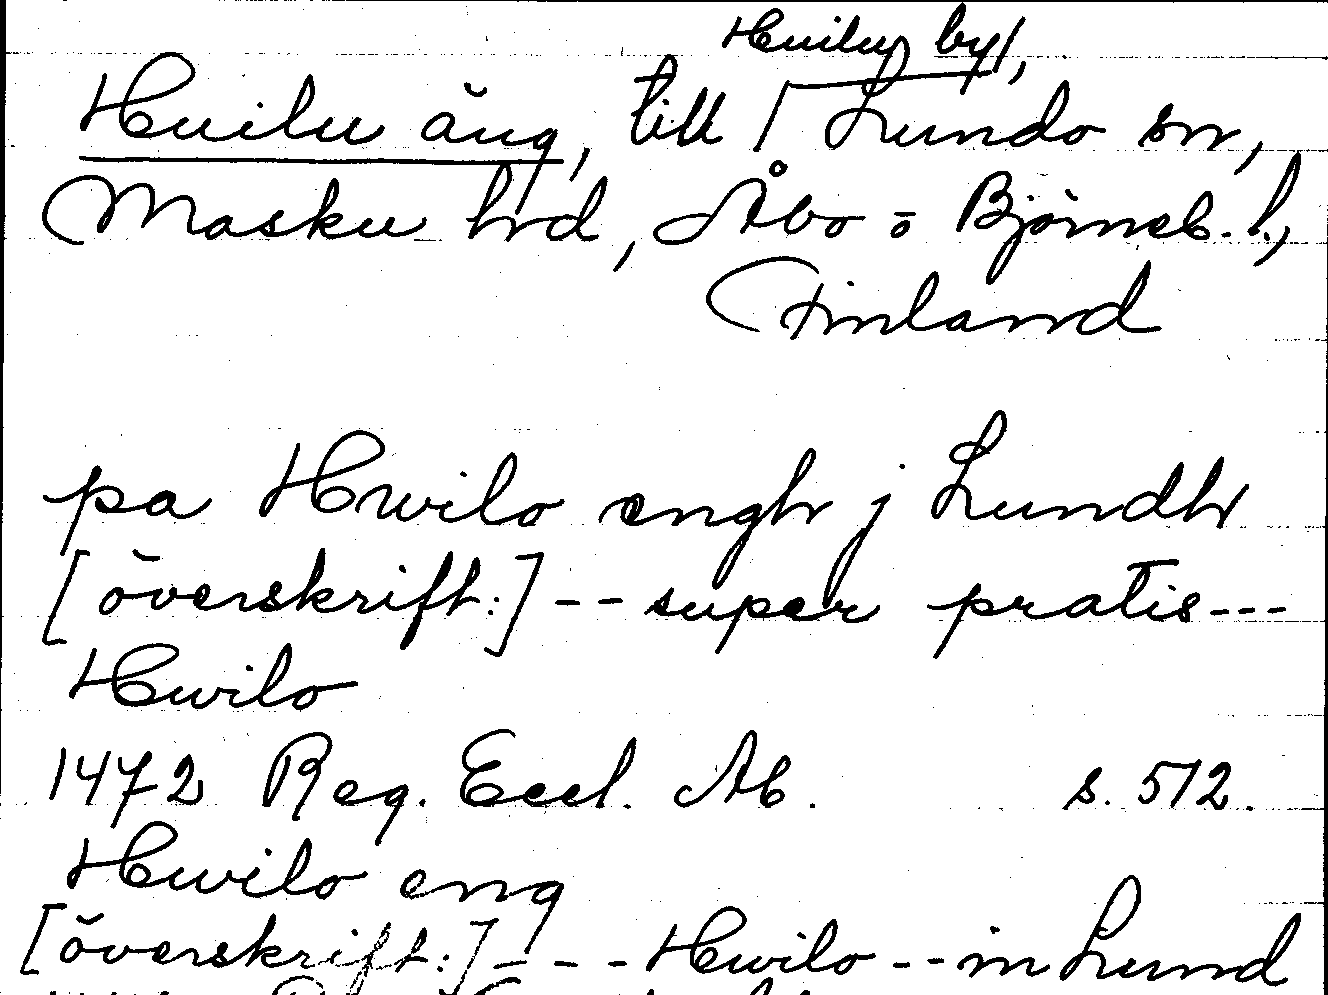 Huilu by,
Huilu äng, till / Lundo sn,
Masku hrd, Åbo o Björneb. l.,
Finland
pa Hwilo engh j Lundh
[överskrift:] -- super pratis ---
Hwilo
1472 Reg. Eccl. Ab. s. 512.
Hwilo eng
[överskrift:] --- Hwilo -- in Lund